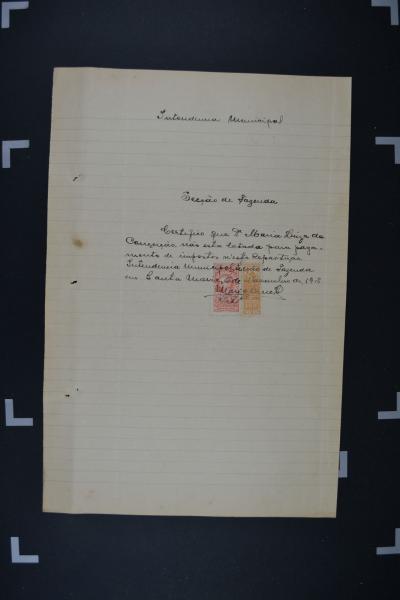 Intendencia Municipal
Secção de Fazenda
Certifico que Dª Maria Luiza da
Conceição não está lotada para paga-
mento de impostos n'esta Repartição.
Intendencia Municipal, Secção de Fazenda
em Santa Maria, de de 19